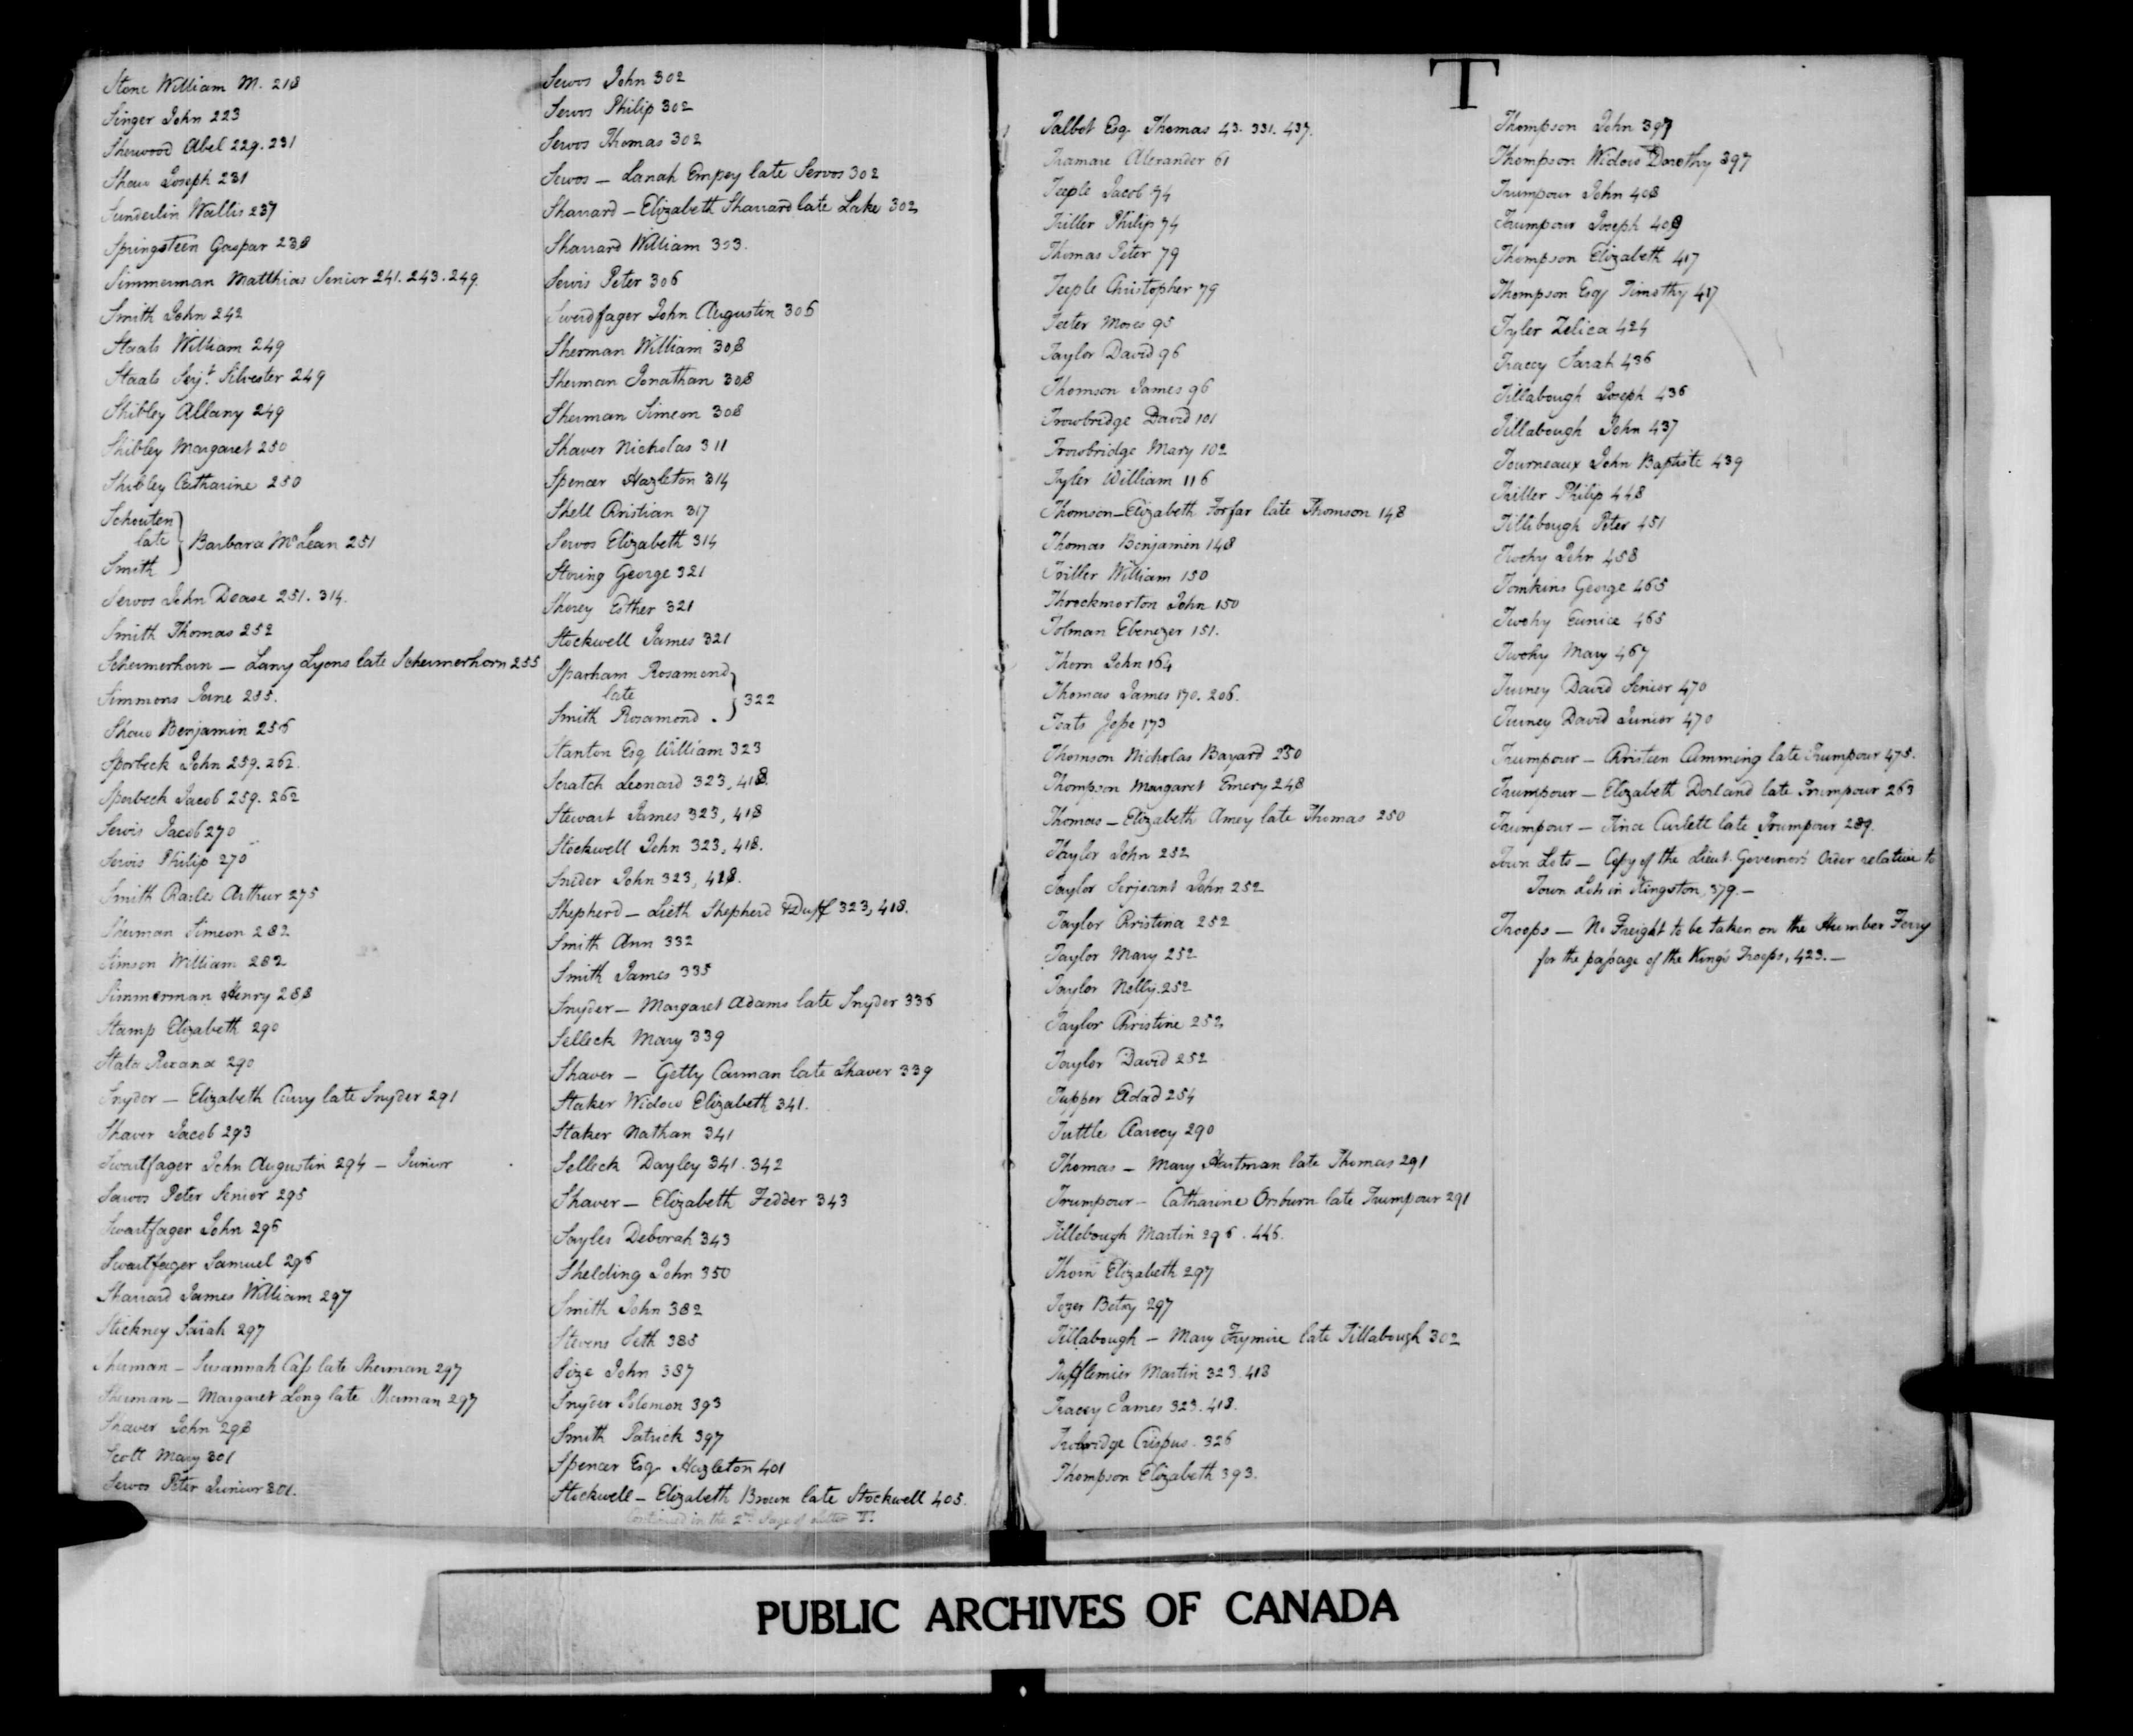 Stone William M. 218
Singer John 223
Sherwood Abel 229. 231
Shaw Joseph 231
Sunderlin Wallis 237
Springsteen Gaspar 238
Simmerman Matthias Senior 241. 243. 249.
Smith John 242
Staats William 249
Staats Serjt. Silvester 249
Shibley Allany 249
Shibley Margaret 250
Shibley Catharine 250
Schouten
late } Barbara McLean 251
Smith
Servos John Dease 251. 314.
Smith Thomas 252
Schermerhorn — Lany Lyons late Schermerhorn 255
Simmons Jane 255.
Shaw Benjamin 256
Sporbeck John 259. 262.
Sporbeck Jacob 259. 262
Servis Jacob 270
Servis Philip 270
Smith Charles Arthur 275
Sherman Simeon 282
Simson William 282
Simmerman Henry 288
Stamp Elizabeth 290
Stata Roxana 290
Snyder — Elizabeth Curry late Snyder 291
Shaver Jacob 293
Swartfager John Augustin 294 — Junior
Servos Peter Senior 295
Swartfager John 296
Swartfager Samuel 296
Sharrard James William 297
Stickney Sarah 297
Sherman — Susannah Cass late Sherman 297
Sherman — Margaret Long late Sherman 297
Shaver John 298
Scott Mary 301
Servos Peter Junior 301.
Servos John 302
Servos Philip 302
Servos Thomas 302
Servos — Lanah Empey late Servos 302
Sharrard — Elizabeth Sharrard late Lake 302
Sharrard William 303.
Servis Peter 306
Swerdfager John Augustin 306
Sherman William 308
Sherman Jonathan 308
Sherman Simeon 308
Shaver Nicholas 311
Spencer Hazleton 314
Shell Christian 317
Servos Elizabeth 314
Storing George 321
Shorey Esther 321
Stockwell James 321
Sparham Rosamond
late } 322
Smith Rosamond.
Stanton Esq William 323
Scratch Leonard 323, 418.
Stewart James 323, 418
Stockwell John 323, 418.
Snider John 323, 418.
Shepherd — Lieth Shepherd & Duff 323, 418.
Smith Ann 332
Smith James 335
Snyder — Margaret Adams late Snyder 336
Selleck Mary 339
Shaver — Getty Carman late Shaver 339
Staker Widow Elizabeth 341.
Staker Nathan 341
Selleck Dayley 341. 342
Shaver — Elizabeth Fedder 343
Sayles Deborah 343
Shelding John 350
Smith John 382
Stevens Seth 385
Size John 387
Snyder Solomon 393
Smith Patrick 397
Spencer Esqr Hazleton 401
Stockwell — Elizabeth Brown late Stockwell 405.
Continued in the 2nd Page of Letter T.
T
Talbot Esqr. Thomas 43. 331. 437.
Tramare Alexander 61
Teeple Jacob 74
Triller Philip 74
Thomas Peter 79
Teeple Christopher 79
Teeter Moses 95
Taylor David 96
Thomson James 96
Trowbridge David 101
Trowbridge Mary 102
Tyler William 116
Thomson — Elizabeth Forfar late Thomson 148
Thomas Benjamin 148
Triller William 150
Throckmorton John 150
Tolman Ebenezer 151.
Thorn John 164
Thomas James 170. 206.
Teats Jesse 173
Thomson Nicholas Bayard 230
Thompson Margaret Emery 248
Thomas — Elizabeth Amey late Thomas 250
Taylor John 252
Taylor Serjeant John 252
Taylor Christina 252
Taylor Mary 252
Taylor Nelly 252
Taylor Christine 252
Taylor David 252
Tupper Adad 254
Tuttle Aarcey 290
Thomas — Mary Hartman late Thomas 291
Trumpour — Catharine Orsburn late Trumpour 291
Tillebough Martin 296. 446.
Thorn Elizabeth 297
Tozer Betsy 297
Tillabough — Mary Frymire late Tillabough 302
Tufflemier Martin 323. 418
Tracey James 323. 418.
Trobridge Crispus. 326
Thompson Elizabeth 393.
Thompson John 397
Thompson Widow Dorothy 397
Trumpour John 408
Trumpour Joseph 409
Thompson Elizabeth 417
Thompson Esqr Timothy 417
Tyler Zelica 424
Tracey Sarah 436
Tillabough Joseph 436
Tillabough John 437
Tourneaux John Baptiste 439
Triller Philip 448
Tillibough Peter 451
Twohy John 458
Tomkins George 465
Twohy Eunice 465
Twohy Mary 467
Turney David Senior 470
Turney David Junior 470
Trumpour — Christeen Cumming late Trumpour 475.
Trumpour — Elizabeth Dorland late Trumpour 263
Trumpour — Tina Carlett late Trumpour 289.
Town Lots — Copy of the Lieut. Governor's Order relative to
Town Lots in Kingston, 379. —
Troops — No Freight to be taken on the Humber Ferry
for the passage of the King's Troops, 423. —
PUBLIC ARCHIVES OF CANADA